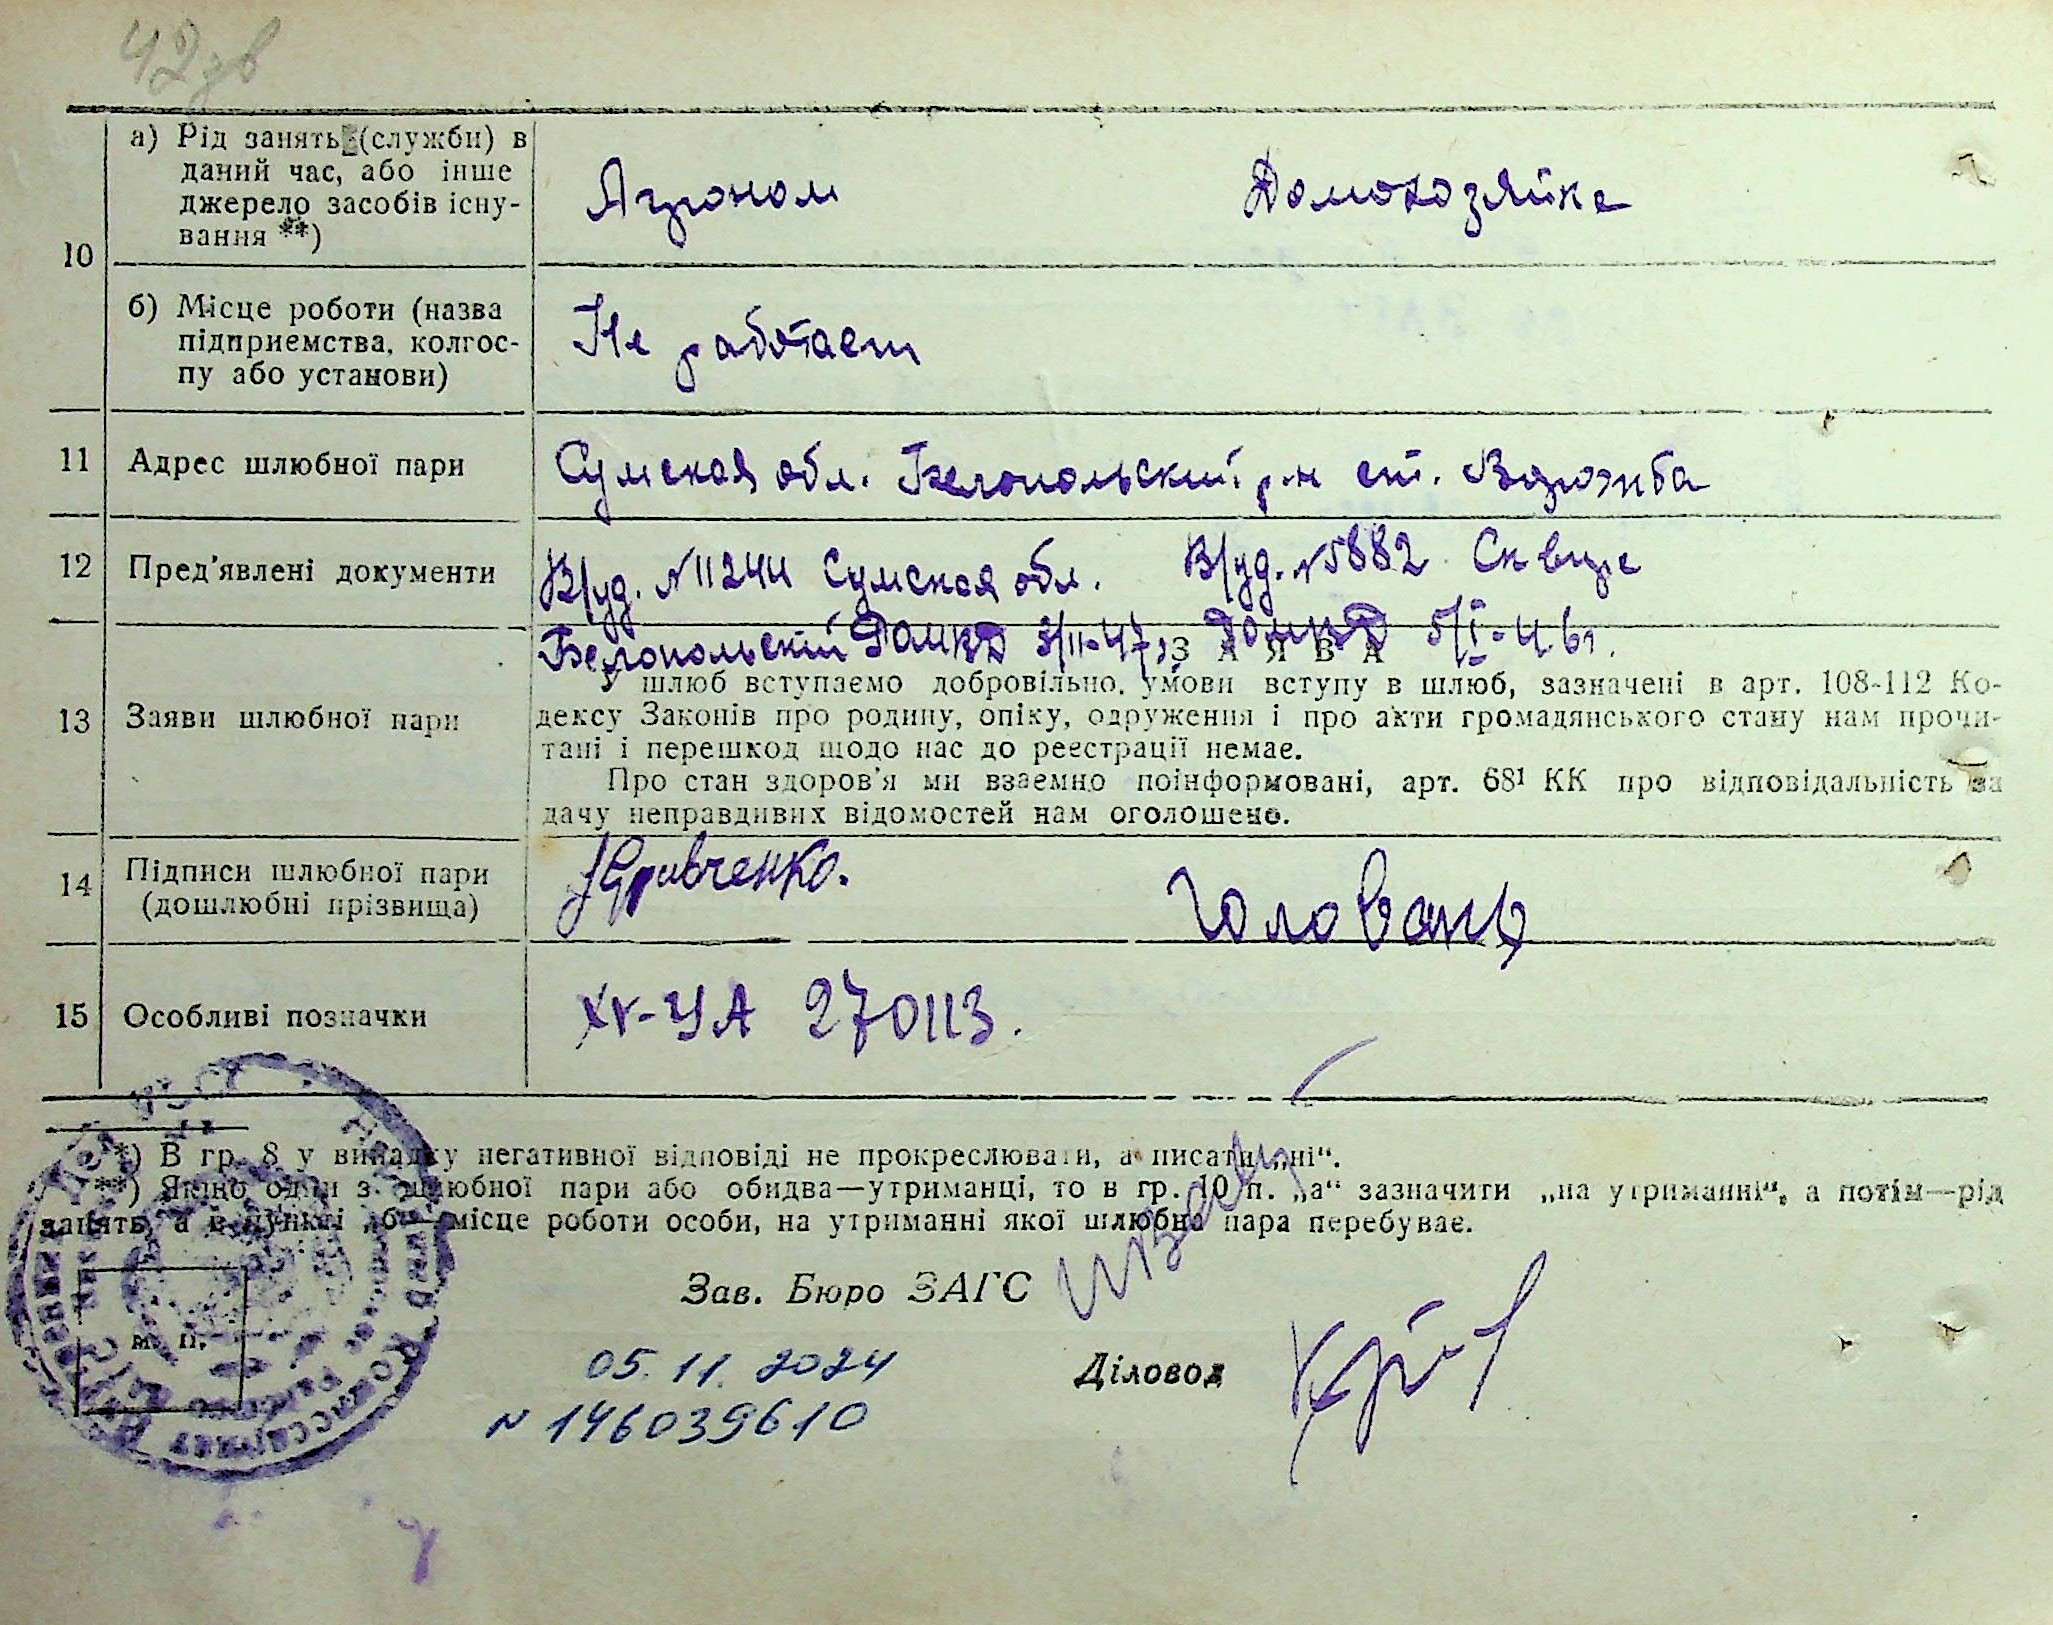 42 зв
10
а) Рід занять (служби) в даний час, або інше джерело засобів існування **)
Агроном Домохозяйка
б) Місце роботи (назва підприємства, колгоспу або установи)
Не работает
11 Адрес шлюбної пари Сумская обл. Белопольский р-н ст. Ворожба
12 Пред'явлені документи В/уд. № 11244 Сумская обл. В/уд. № 5882 Сквир
Белопольскій 3/II-47 5/I-46г.
З А Я В А
13 Заяви шлюбної пари
У шлюб вступаємо добровільно, умови вступу в шлюб, зазначені в арт. 108-112 Ко-
дексу Законів про родину, опіку, одруження і про акти громадянського стану нам прочи-
тані і перешкод щодо нас до реєстрації немає.
Про стан здоров'я ми взаємно поінформовані, арт. 68¹ КК про відповідальність за
дачу неправдивих відомостей нам оголошено.
14 Підписи шлюбної пари (дошлюбні прізвища)
Кравченко. Головань
15 Особливі позначки ХУ-УА 270113.
*) В гр. 8 у випадку негативної відповіді не прокреслювати, а писати „ні“.
**) Якщо один з шлюбної пари або обидва—утриманці, то в гр. 10 п. „а“ зазначити „на утриманні“, а потім—рід
занять, а в пункті „б“—місце роботи особи, на утриманні якої шлюбна пара перебуває.
Зав. Бюро ЗАГС
м. п.
05.11.2024 Діловод
N 146039610